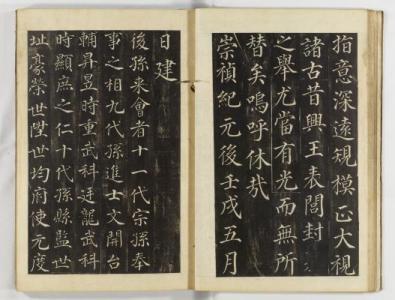 指意深遠規模正大視
諸古昔興王表閭封
之舉尤當有光而無所
替矣嗚呼休哉
崇禎紀元後壬戌五月
日建
後孫來會者十一代宗孫奉
事之相九代孫進士文開台
輔昇昱時重武科廷龍武科
時顯庶之仁十代孫縣監世
址豪榮世陞世均府使元度